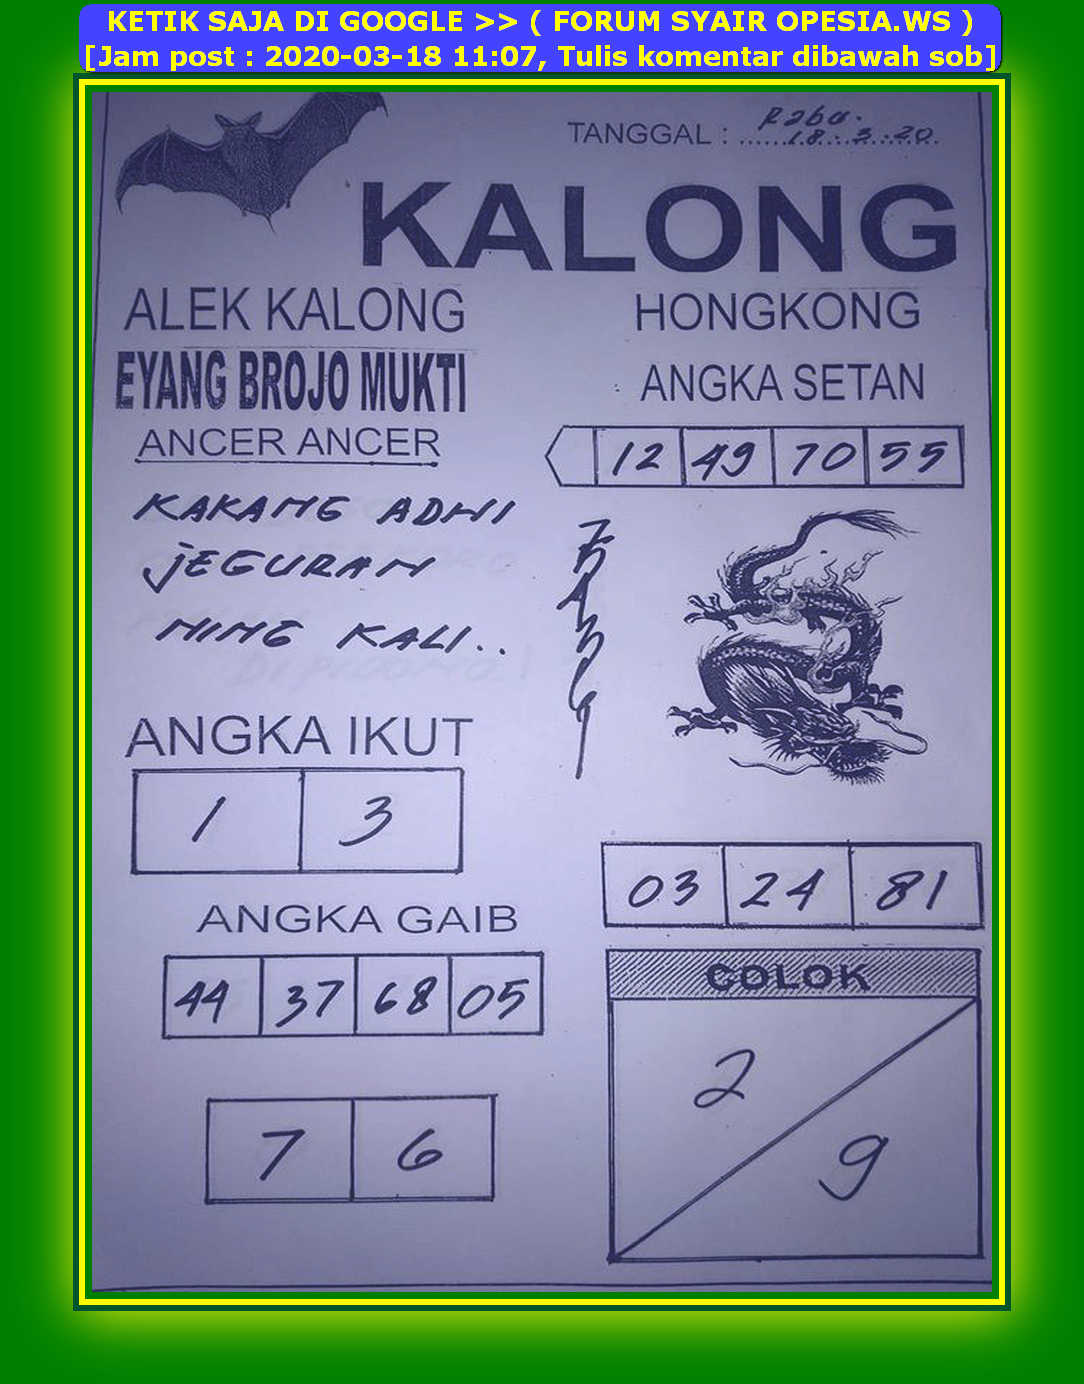 KETIK SAJA DI GOOGLE >> ( FORUM SYAIR OPESIA.WS )
[Jam post : 2020-03-18 11:07, Tulis komentar dibawah sob]
TANGGAL : Rabu. 18.3.20
KALONG
ALEK KALONG
EYANG BROJO MUKTI
ANCER ANCER
KAKANG ADHI
JEGURAN
NING KALI..
ANGKA IKUT
1 3
ANGKA GAIB
44 37 68 05
7 6
HONGKONG
ANGKA SETAN
12 49 70 55
03 24 81
COLOK
2
9